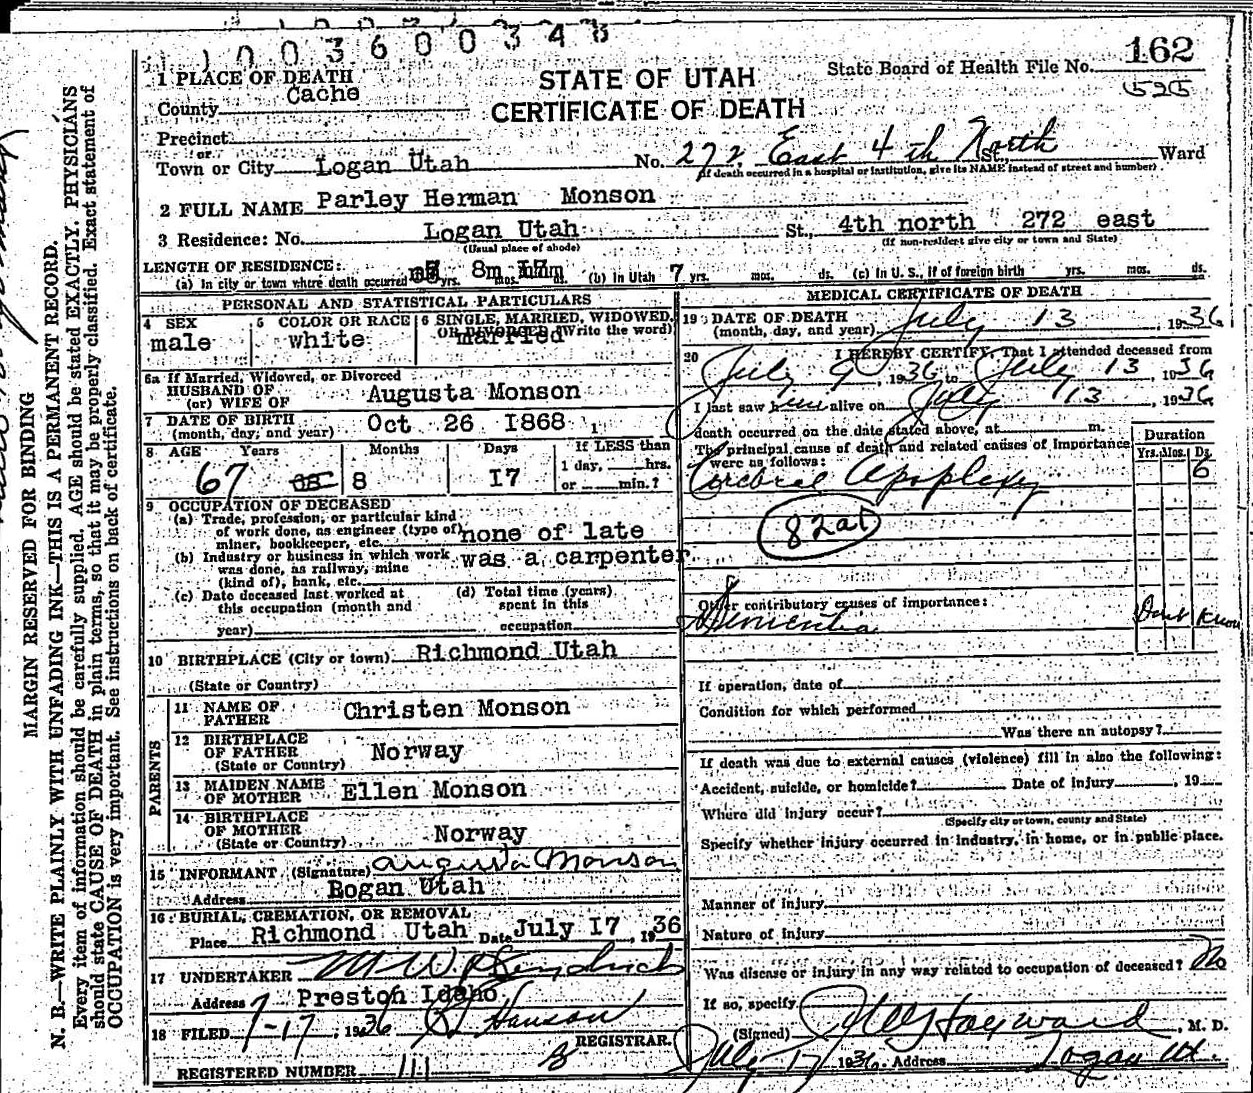 1003600348
162
State Board of Health File No.
525
STATE OF UTAH
CERTIFICATE OF DEATH
1 PLACE OF DEATH
County Cache
Precinct
or
Town or City Logan Utah No. 272 East 4th North St., Ward
(If death occurred in a hospital or institution, give its NAME instead of street and number)
2 FULL NAME Parley Herman Monson
3 Residence: No. Logan Utah St., 4th north 272 east
(Usual place of abode) (If non-resident give city or town and State)
LENGTH OF RESIDENCE:
(a) In city or town where death occurred yrs. 8m mos. ds. (b) In Utah 7 yrs. mos. ds. (c) In U. S., if of foreign birth yrs. mos. ds.
PERSONAL AND STATISTICAL PARTICULARS
4 SEX male
5 COLOR OR RACE white
6 SINGLE, MARRIED, WIDOWED, OR DIVORCED (Write the word) married
6a If Married, Widowed, or Divorced
HUSBAND OF
(or) WIFE OF Augusta Monson
7 DATE OF BIRTH
(month, day, and year) Oct 26 1868
8 AGE Years Months Days If LESS than
67 8 17 1 day, hrs.
or min.?
9 OCCUPATION OF DECEASED
(a) Trade, profession, or particular kind
of work done, as engineer (type of)
miner, bookkeeper, etc. none of late
(b) Industry or business in which work
was done, as railway, mine
(kind of), bank, etc. was a carpenter
(c) Date deceased last worked at
this occupation (month and
year)
(d) Total time (years)
spent in this
occupation
10 BIRTHPLACE (City or town) Richmond Utah
(State or Country)
PARENTS
11 NAME OF
FATHER Christen Monson
12 BIRTHPLACE
OF FATHER Norway
(State or Country)
13 MAIDEN NAME
OF MOTHER Ellen Monson
14 BIRTHPLACE
OF MOTHER Norway
(State or Country)
15 INFORMANT (Signature) Augusta Monson
Address Bogan Utah
16 BURIAL, CREMATION, OR REMOVAL
Place Richmond Utah Date July 17, 1936
17 UNDERTAKER
Address Preston Idaho
18 FILED 7-17, 1936 Hanson
REGISTRAR.
REGISTERED NUMBER 111
MEDICAL CERTIFICATE OF DEATH
19 DATE OF DEATH
(month, day, and year) July 13, 1936
20 I HEREBY CERTIFY, That I attended deceased from
July 9, 1936 to July 13, 1936
I last saw him alive on July 13, 1936
death occurred on the date stated above, at m.
The principal cause of death and related causes of Importance
were as follows:
Duration
Yrs. Mos. Ds.
Cerebral Apoplexy 6
82a1
Other contributory causes of importance:
Dementia Dont Know
If operation, date of
Condition for which performed
Was there an autopsy?
If death was due to external causes (violence) fill in also the following:
Accident, suicide, or homicide? Date of injury, 19
Where did injury occur?
(Specify city or town, county and State)
Specify whether injury occurred in industry, in home, or in public place.
Manner of injury
Nature of injury
Was disease or injury in any way related to occupation of deceased? No
If so, specify
(Signed) Hayward, M. D.
July 17 1936. Address Logan Ut.
MARGIN RESERVED FOR BINDING
N. B.—WRITE PLAINLY WITH UNFADING INK—THIS IS A PERMANENT RECORD.
Every item of information should be carefully supplied. AGE should be stated EXACTLY. PHYSICIANS
should state CAUSE OF DEATH in plain terms, so that it may be properly classified. Exact statement of
OCCUPATION is very important. See instructions on back of certificate.